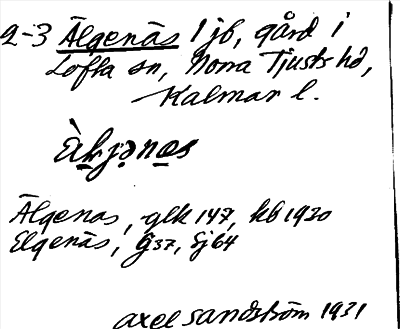 2-3 Älgenäs 1 jb, gård i
Lofta sn, Norra Tjusts hd,
Kalmar l.
Älgenäs, glk 147, kb 1920
Elgenäs, G37, Sj64
Axel Sandström 1931